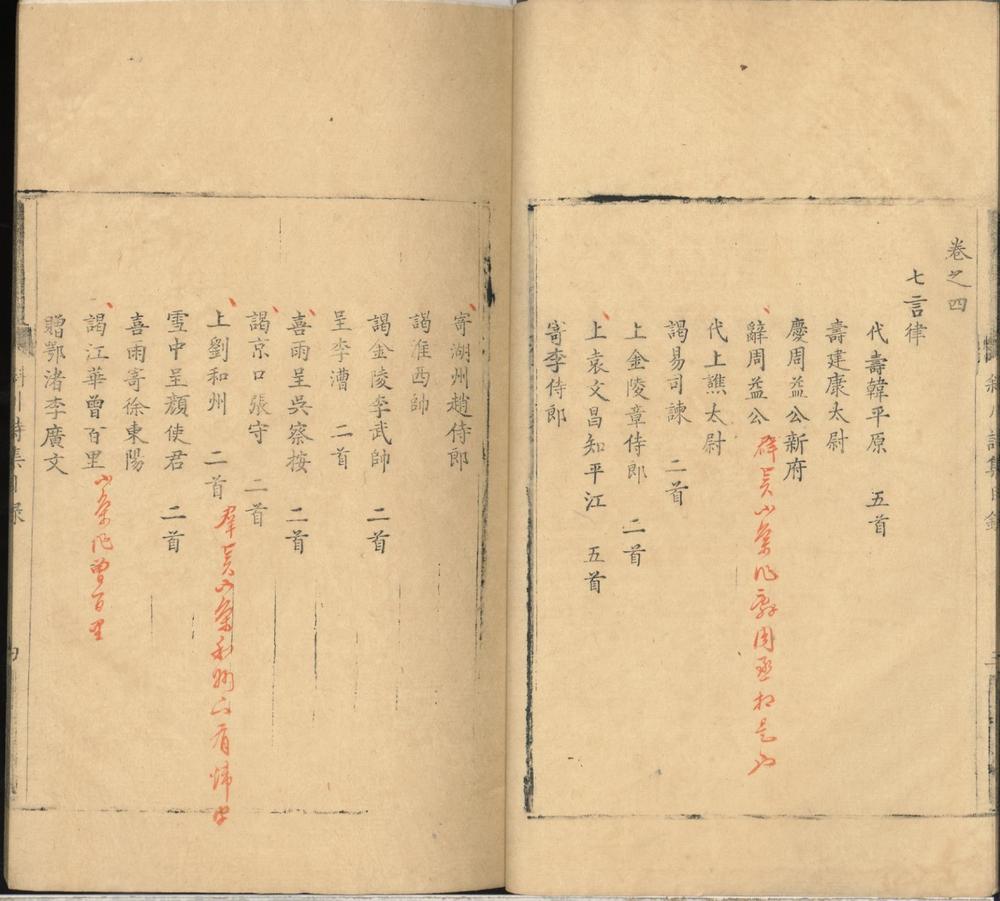 卷之四
七言律
代壽韓平原 五首
壽建康太尉
慶周益公新府
辭周益公 群賢小集作辭周丞相是也
代上譙太尉
謁易司諫 二首
上金陵章侍郎 二首
上袁文昌知平江 五首
寄李侍郎
寄湖州趙侍郎
謁淮西帥
謁金陵李武帥 二首
呈李漕 二首
喜雨呈吳察按 二首
謁京口張守 二首
上劉和州 二首 群賢小集和州下有煒字
雪中呈顏使君 二首
喜雨寄徐東陽
謁江華曾百里 小集作曾百里
贈鄂渚李廣文
詩集目錄